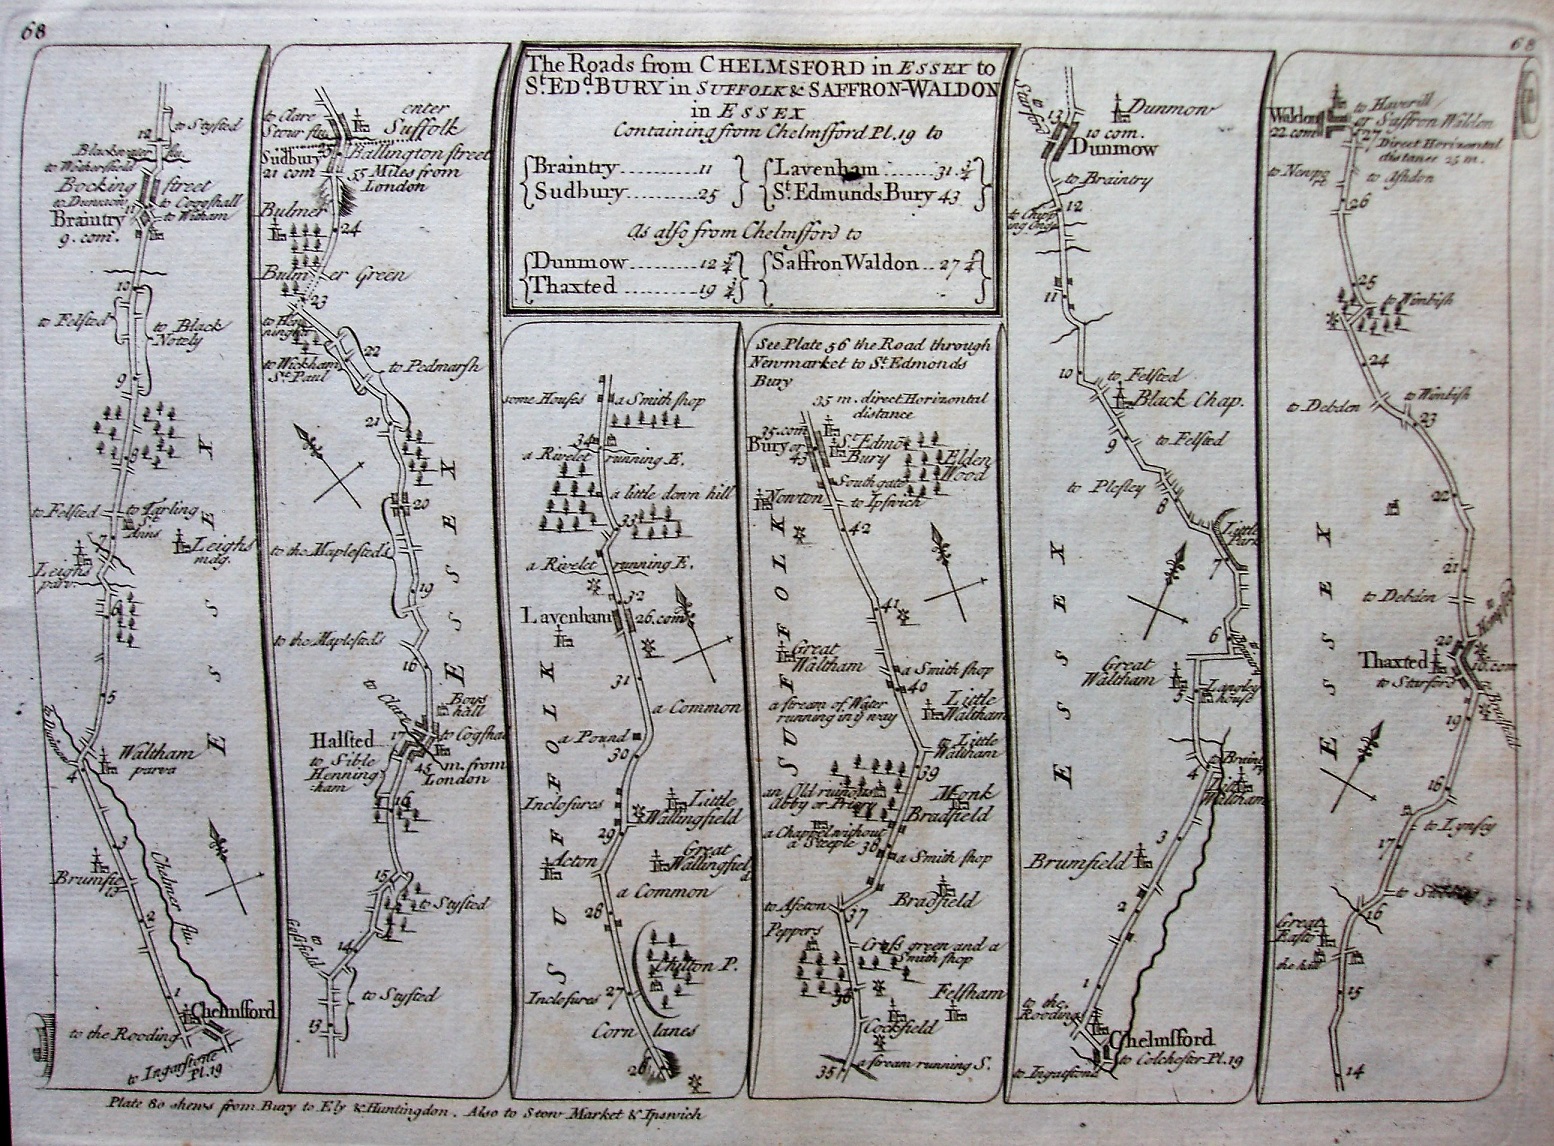 68
68
The Roads from CHELMSFORD in ESSEX to
St. EDd. BURY in SUFFOLK & SAFFRON-WALDON
in ESSEX
Containing from Chelmsford Pl. 19 to
Braintry 11
Sudbury 25
Lavenham 31 ¼
St. Edmunds Bury 43
As also from Chelmsford to
Dunmow 12 ¾
Thaxted 19 ¾
Saffron Waldon 27 ¼
12
to Stysted
Blackwater flu.
to Wethersfield
Bocking street
to Dunmow
to Coggshall
Braintry
11
to Witham
9. com.
10
to Felsted
to Black
Notely
9
8
to Felsted
to Tarling
St.
Anns
7
Leighs
mag.
Leighs
parv.
6
5
to Dunmow
Waltham
parva
4
3
Brumfield
Chelmer flu.
2
1
Chelmsford
to the Rooding
to Ingarstone
Pl. 19
ESSEX
to Clare
enter
Suffolk
Stour flu.
Sudbury
25
Ballington street
21 com
55 Miles from
London
Bulmer
24
Bulmer Green
23
to Henningham
22
to Wickham
St. Paul
to Pedmarsh
21
20
to the Maplesteds
19
to the Maplesteds
16
to Clare
Boys
hall
Halsted
17
to Cogshal
to Sible
Henning
-ham
45 m. from
London
16
15
to Stysted
14
to Stysted
13
ESSEX
some Houses
a Smith shop
34
a Rivelet running E.
a little down hill
33
a Rivelet running E.
32
Lavenham
26. com.
31
a Common
a Pound
30
Inclosures
Little
Wallingfield
29
Acton
Great
Wallingfield
a Common
28
Chilton P.
Inclosures
27
Corn lanes
26
SUFFOLK
See Plate 56 the Road through
Newmarket to St. Edmonds
Bury
35 m. direct Horizontal
distance
35. com
Bury or
43
St. Edmo
Bury
Elden
Wood
South gate
Nowton
to Ipswich
42
41
Great
Waltham
a Smith shop
40
a stream of Water
running in ye way
Little
Waltham
to Little
Waltham
39
an Old ruinous
Abby or Priory
Monk
Bradfield
a Chappel without
a Steeple
38
a Smith shop
Bradfield
to Aston
37
Peppers
Cross green and a
Smith shop
36
Felsham
Cockfield
35
a stream running S.
SUFFOLK
to Starford
13
Dunmow
10 com.
Dunmow
to Braintry
12
to Chipping Ongr
11
10
to Felsted
Black Chap.
9
to Felsted
to Plesley
8
Little
Park
7
6
Great
Waltham
5
Langley
house
to Braintry
4
Little
Waltham
3
Brumfield
2
1
to the
Rooding
Chelmsford
to Colchester Pl. 19
to Ingatstone
ESSEX
Waldon
22 com
to Haverill
or Saffron Waldon
27
Direct Horizontal
distance 25 m.
to Newport
to Ashdon
26
25
to Wimbish
24
to Debden
to Wimbish
23
22
21
to Debden
to Hempsted
20
Thaxted
18. com
to Starford
to Bradfield
19
16
to Lynsey
17
16
Great
Easto
the hall
15
14
ESSEX
Plate 80 shews from Bury to Ely & Huntingdon. Also to Stow Market & Ipswich